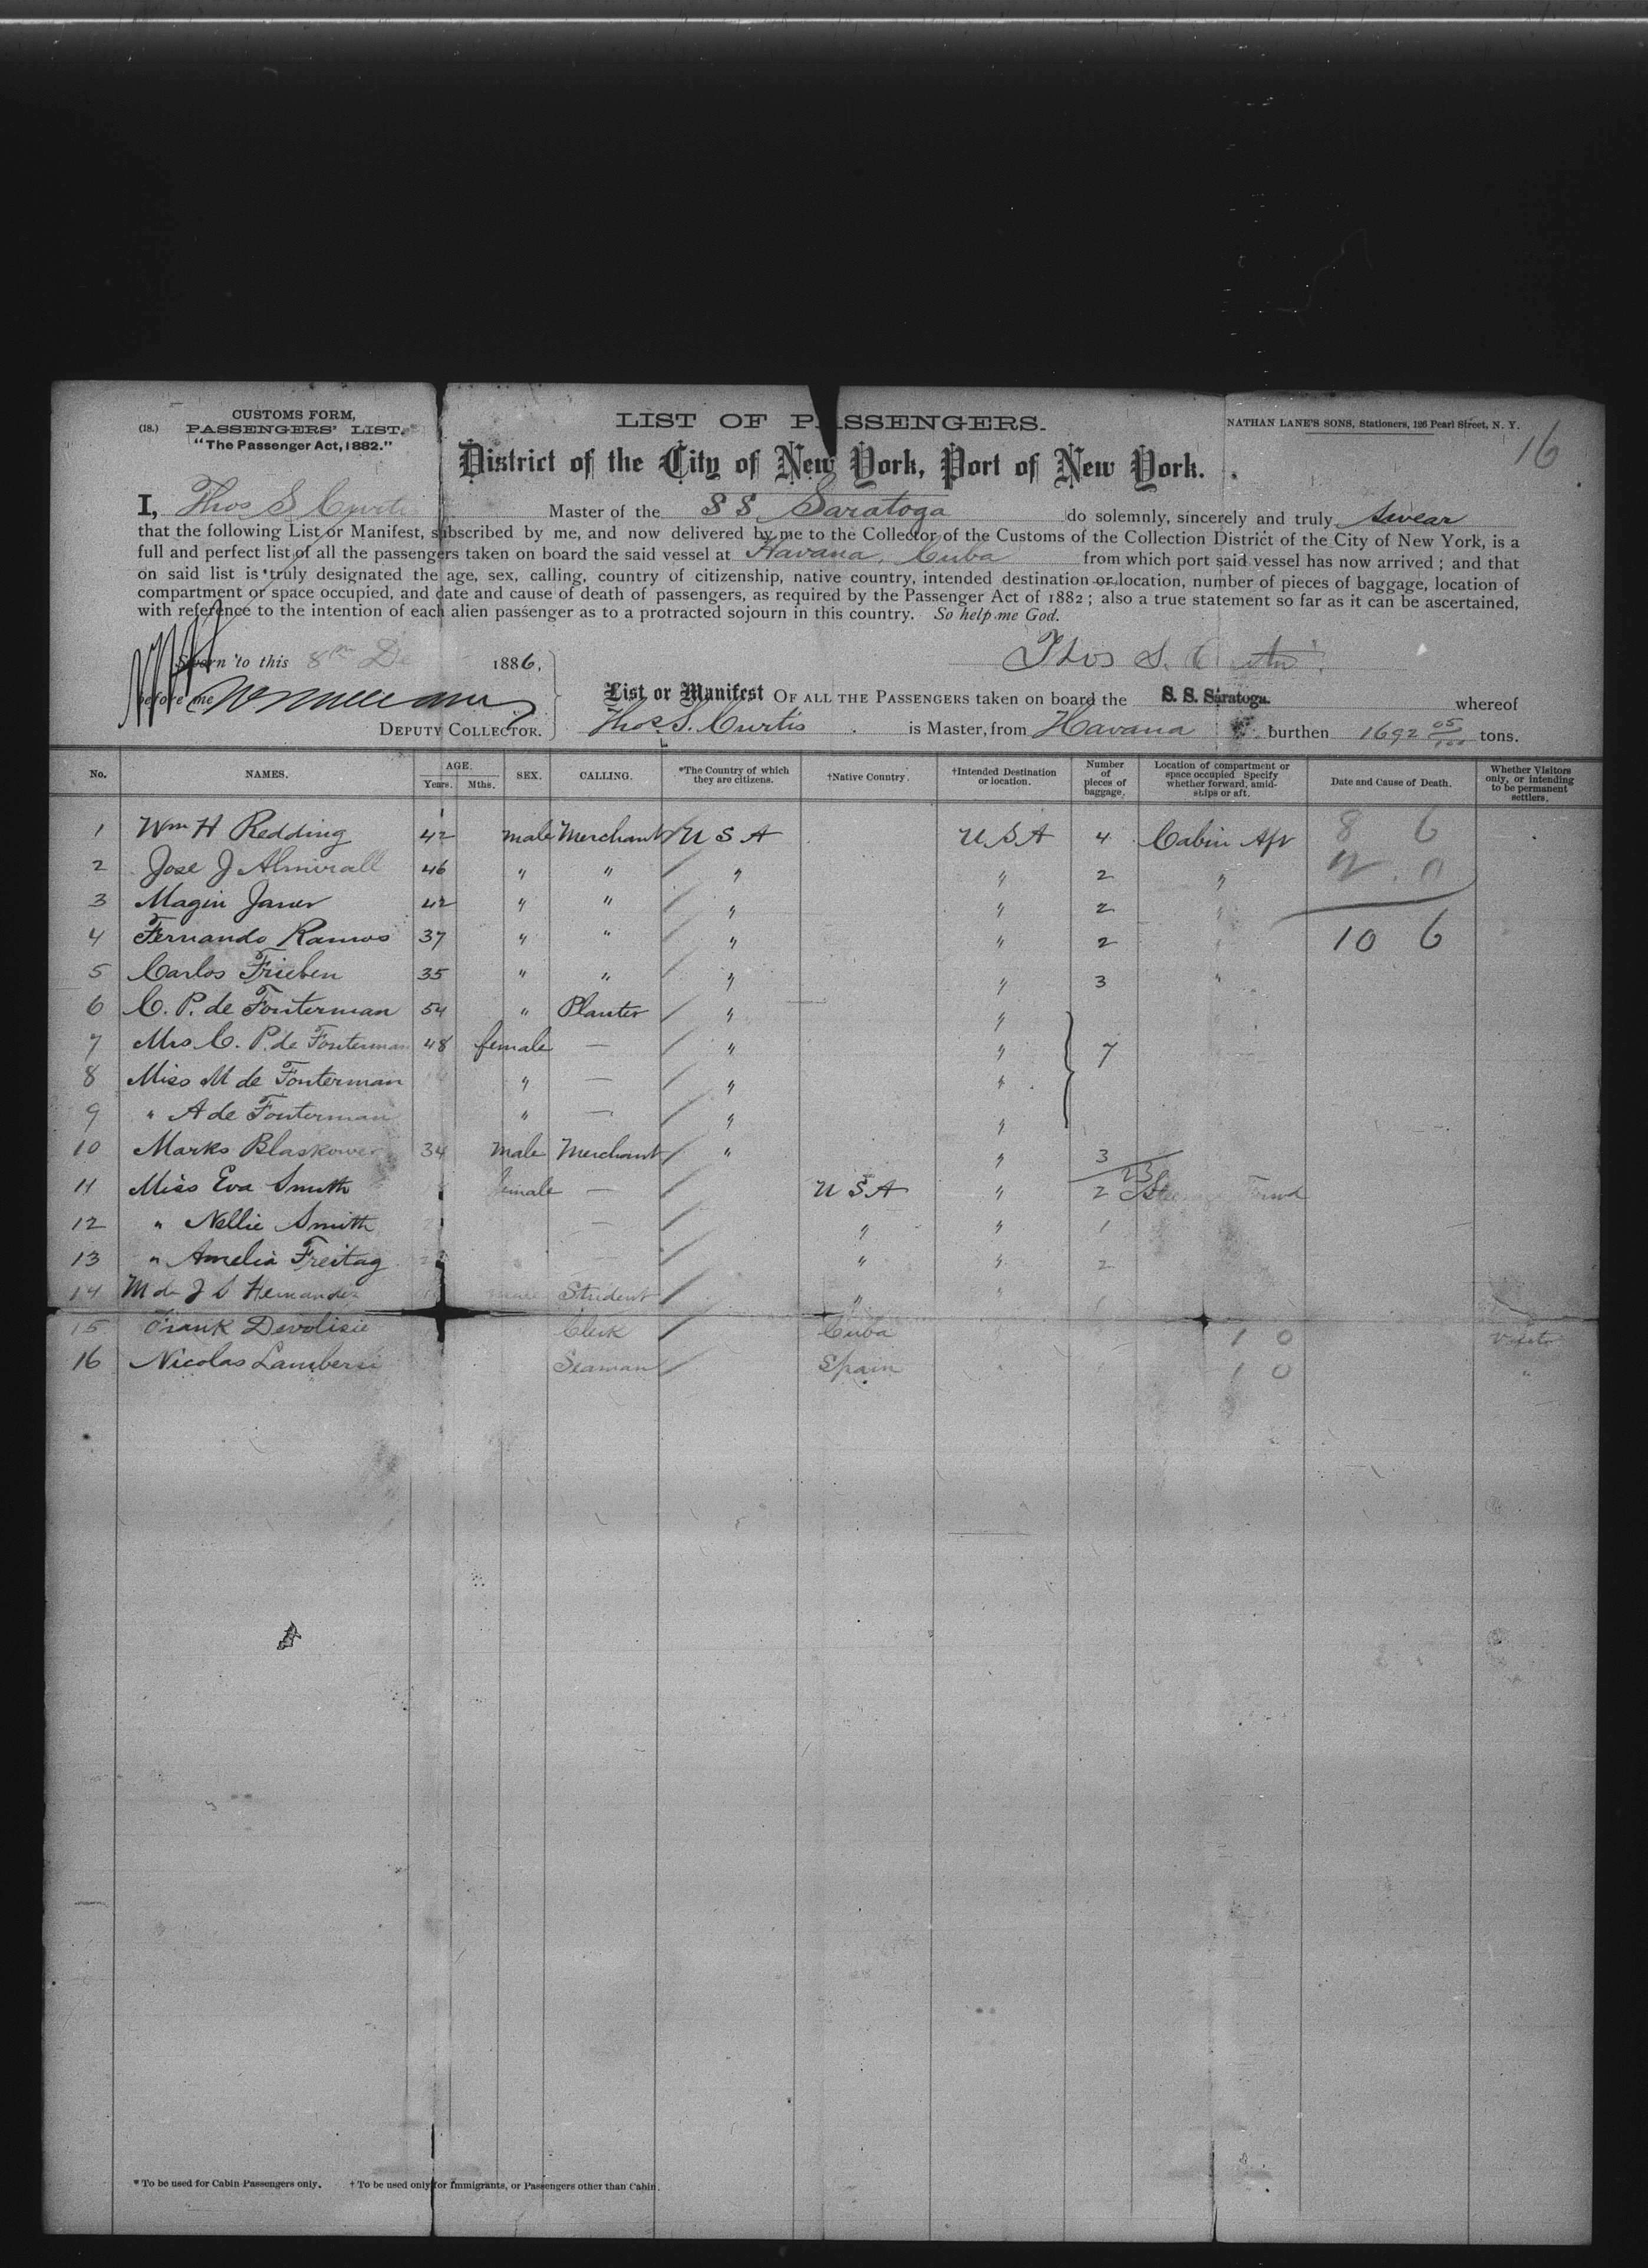 CUSTOMS FORM,
(18.) PASSENGERS' LIST.
"The Passenger Act, 1882."
LIST OF PASSENGERS.
NATHAN LANE'S SONS, Stationers, 126 Pearl Street, N. Y.
16
District of the City of New York, Port of New York.
I, Thos S Curtis Master of the S S Saratoga do solemnly, sincerely and truly swear
that the following List or Manifest, subscribed by me, and now delivered by me to the Collector of the Customs of the Collection District of the City of New York, is a
full and perfect list of all the passengers taken on board the said vessel at Havana, Cuba from which port said vessel has now arrived ; and that
on said list is truly designated the age, sex, calling, country of citizenship, native country, intended destination or location, number of pieces of baggage, location of
compartment or space occupied, and date and cause of death of passengers, as required by the Passenger Act of 1882 ; also a true statement so far as it can be ascertained,
with reference to the intention of each alien passenger as to a protracted sojourn in this country. So help me God.
Sworn to this 8th De 1886, Thos S. Curtis
before me
List or Manifest OF ALL THE PASSENGERS taken on board the S. S. Saratoga. whereof
DEPUTY COLLECTOR. Thos. S. Curtis is Master, from Havana burthen 1692 05/100 tons.
No. NAMES. AGE. Years. Mths. SEX. CALLING. *The Country of which they are citizens. †Native Country. †Intended Destination or location. Number of pieces of baggage. Location of compartment or space occupied Specify whether forward, amidships or aft. Date and Cause of Death. Whether Visitors only, or intending to be permanent settlers.
1 Wm H Redding 42 male Merchant U S A U S A 4 Cabin Aft 8 6
2 Jose J Almirall 46 " " " " 2 "
3 Magin Janer 42 " " " " 2 "
4 Fernando Ramos 37 " " " " 2 " 10 6
5 Carlos Frieben 35 " " " " 3 "
6 C. P. de Fonterman 54 " Planter " "
7 Mrs C. P. de Fonterman 48 female — " " 7
8 Miss M de Fonterman " — " "
9 " A de Fonterman " — " "
10 Marks Blaskower 34 male Merchant " " 3
23
11 Miss Eva Smith female — U S A " 2 Steerage Forwd
12 " Nellie Smith — " " 1
13 " Amelia Freitag " " 2
14 J C Hernandez male Student " "
15 Frank Devolisie Clerk Cuba 1 0
16 Nicolas Lambersi Seaman Spain 1 0 "
* To be used for Cabin Passengers only. † To be used only for Immigrants, or Passengers other than Cabin.